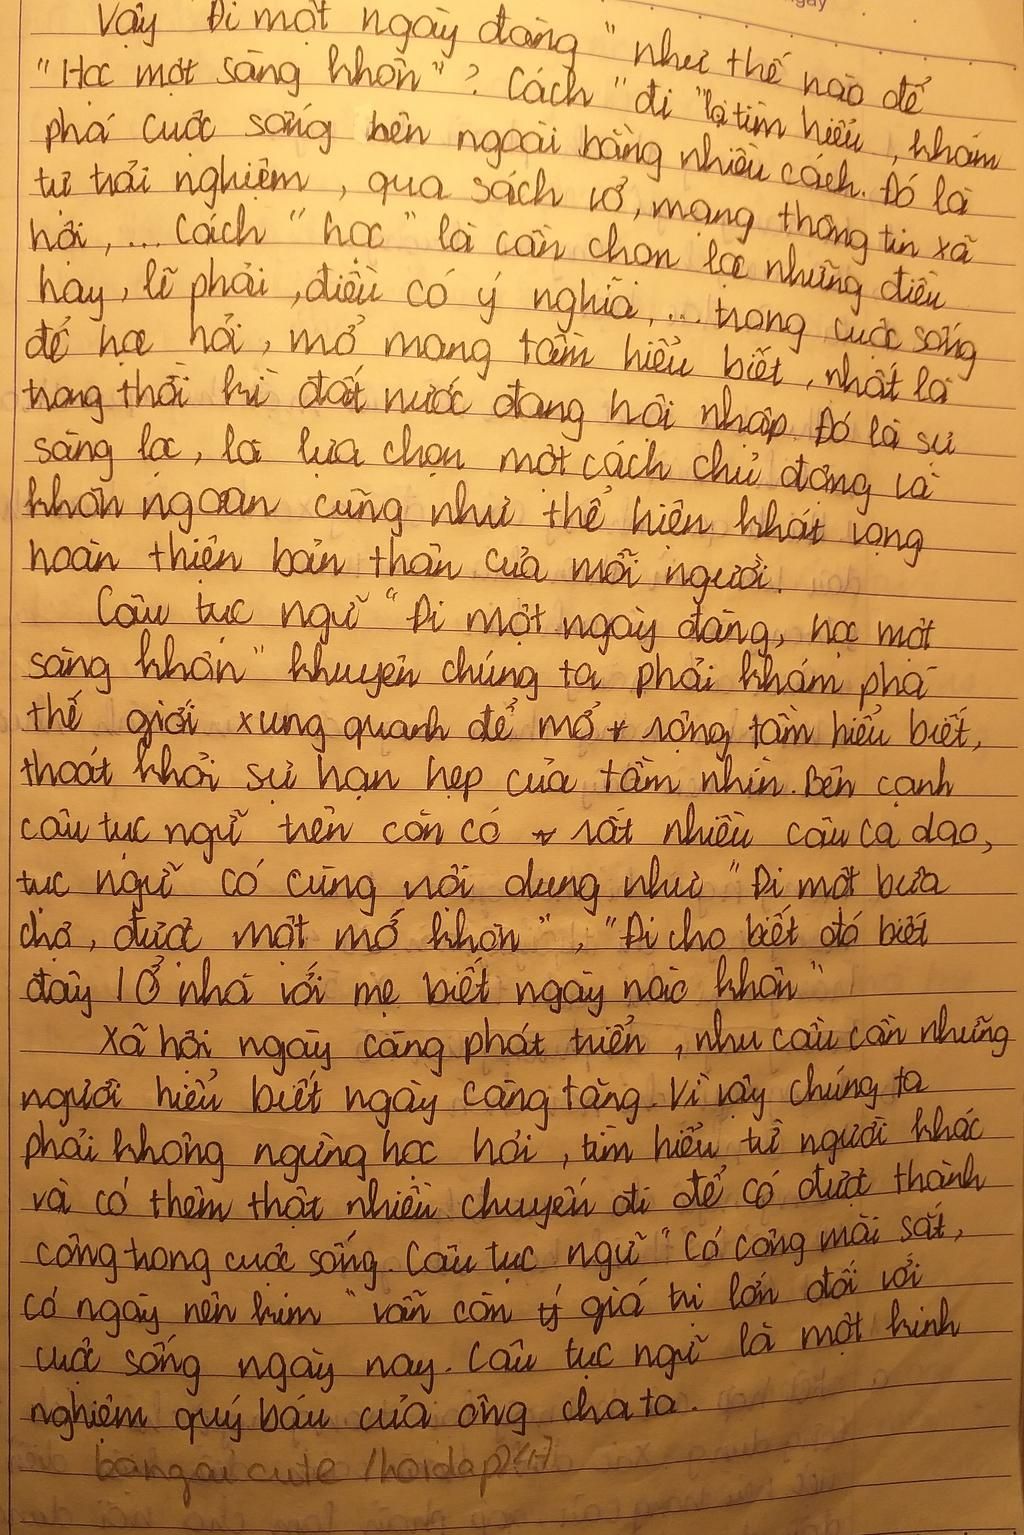 Vậy Đi một ngày đàng " như thế nào để
"Học một sàng khôn" ? Cách "đi "là tìm hiểu , khám
phá cuộc sống bên ngoài bằng nhiều cách. Đó là
tự trải nghiệm , qua sách vở, mạng thông tin xã
hội , ... Cách "học" là cần chọn lọc những điều
hay , lẽ phải , điều có ý nghĩa , ... trong cuộc sống
để học hỏi , mở mang tầm hiểu biết , nhất là
trong thời kì đất nước đang hội nhập. Đó là sự
sàng lọc , là lựa chọn một cách chủ động và
khôn ngoan cũng như thể hiện khát vọng
hoàn thiện bản thân của mỗi người.
Câu tục ngữ "Đi một ngày đàng, học một
sàng khôn" khuyên chúng ta phải khám phá
thế giới xung quanh để mở rộng tầm hiểu biết,
thoát khỏi sự hạn hẹp của tầm nhìn. Bên cạnh
câu tục ngữ trên còn có rất nhiều câu ca dao,
tục ngữ có cùng nội dung như "Đi một bữa
chợ , đượt một mớ khôn" , "Đi cho biết đó biết
đây / Ở nhà với mẹ biết ngày nào khôn"
Xã hội ngày càng phát triển , nhu cầu cần những
người hiểu biết ngày càng tăng. Vì vậy chúng ta
phải không ngừng học hỏi , tìm hiểu từ người khác
và có thêm thật nhiều chuyến đi để có đượt thành
công trong cuộc sống. Câu tục ngữ "Có công mài sắt,
có ngày nên kim" vẫn còn giá trị lớn đối với
cuộc sống ngày nay. Câu tục ngữ là một kinh
nghiệm quý báu của ông cha ta.
bangai cute /hoidap247